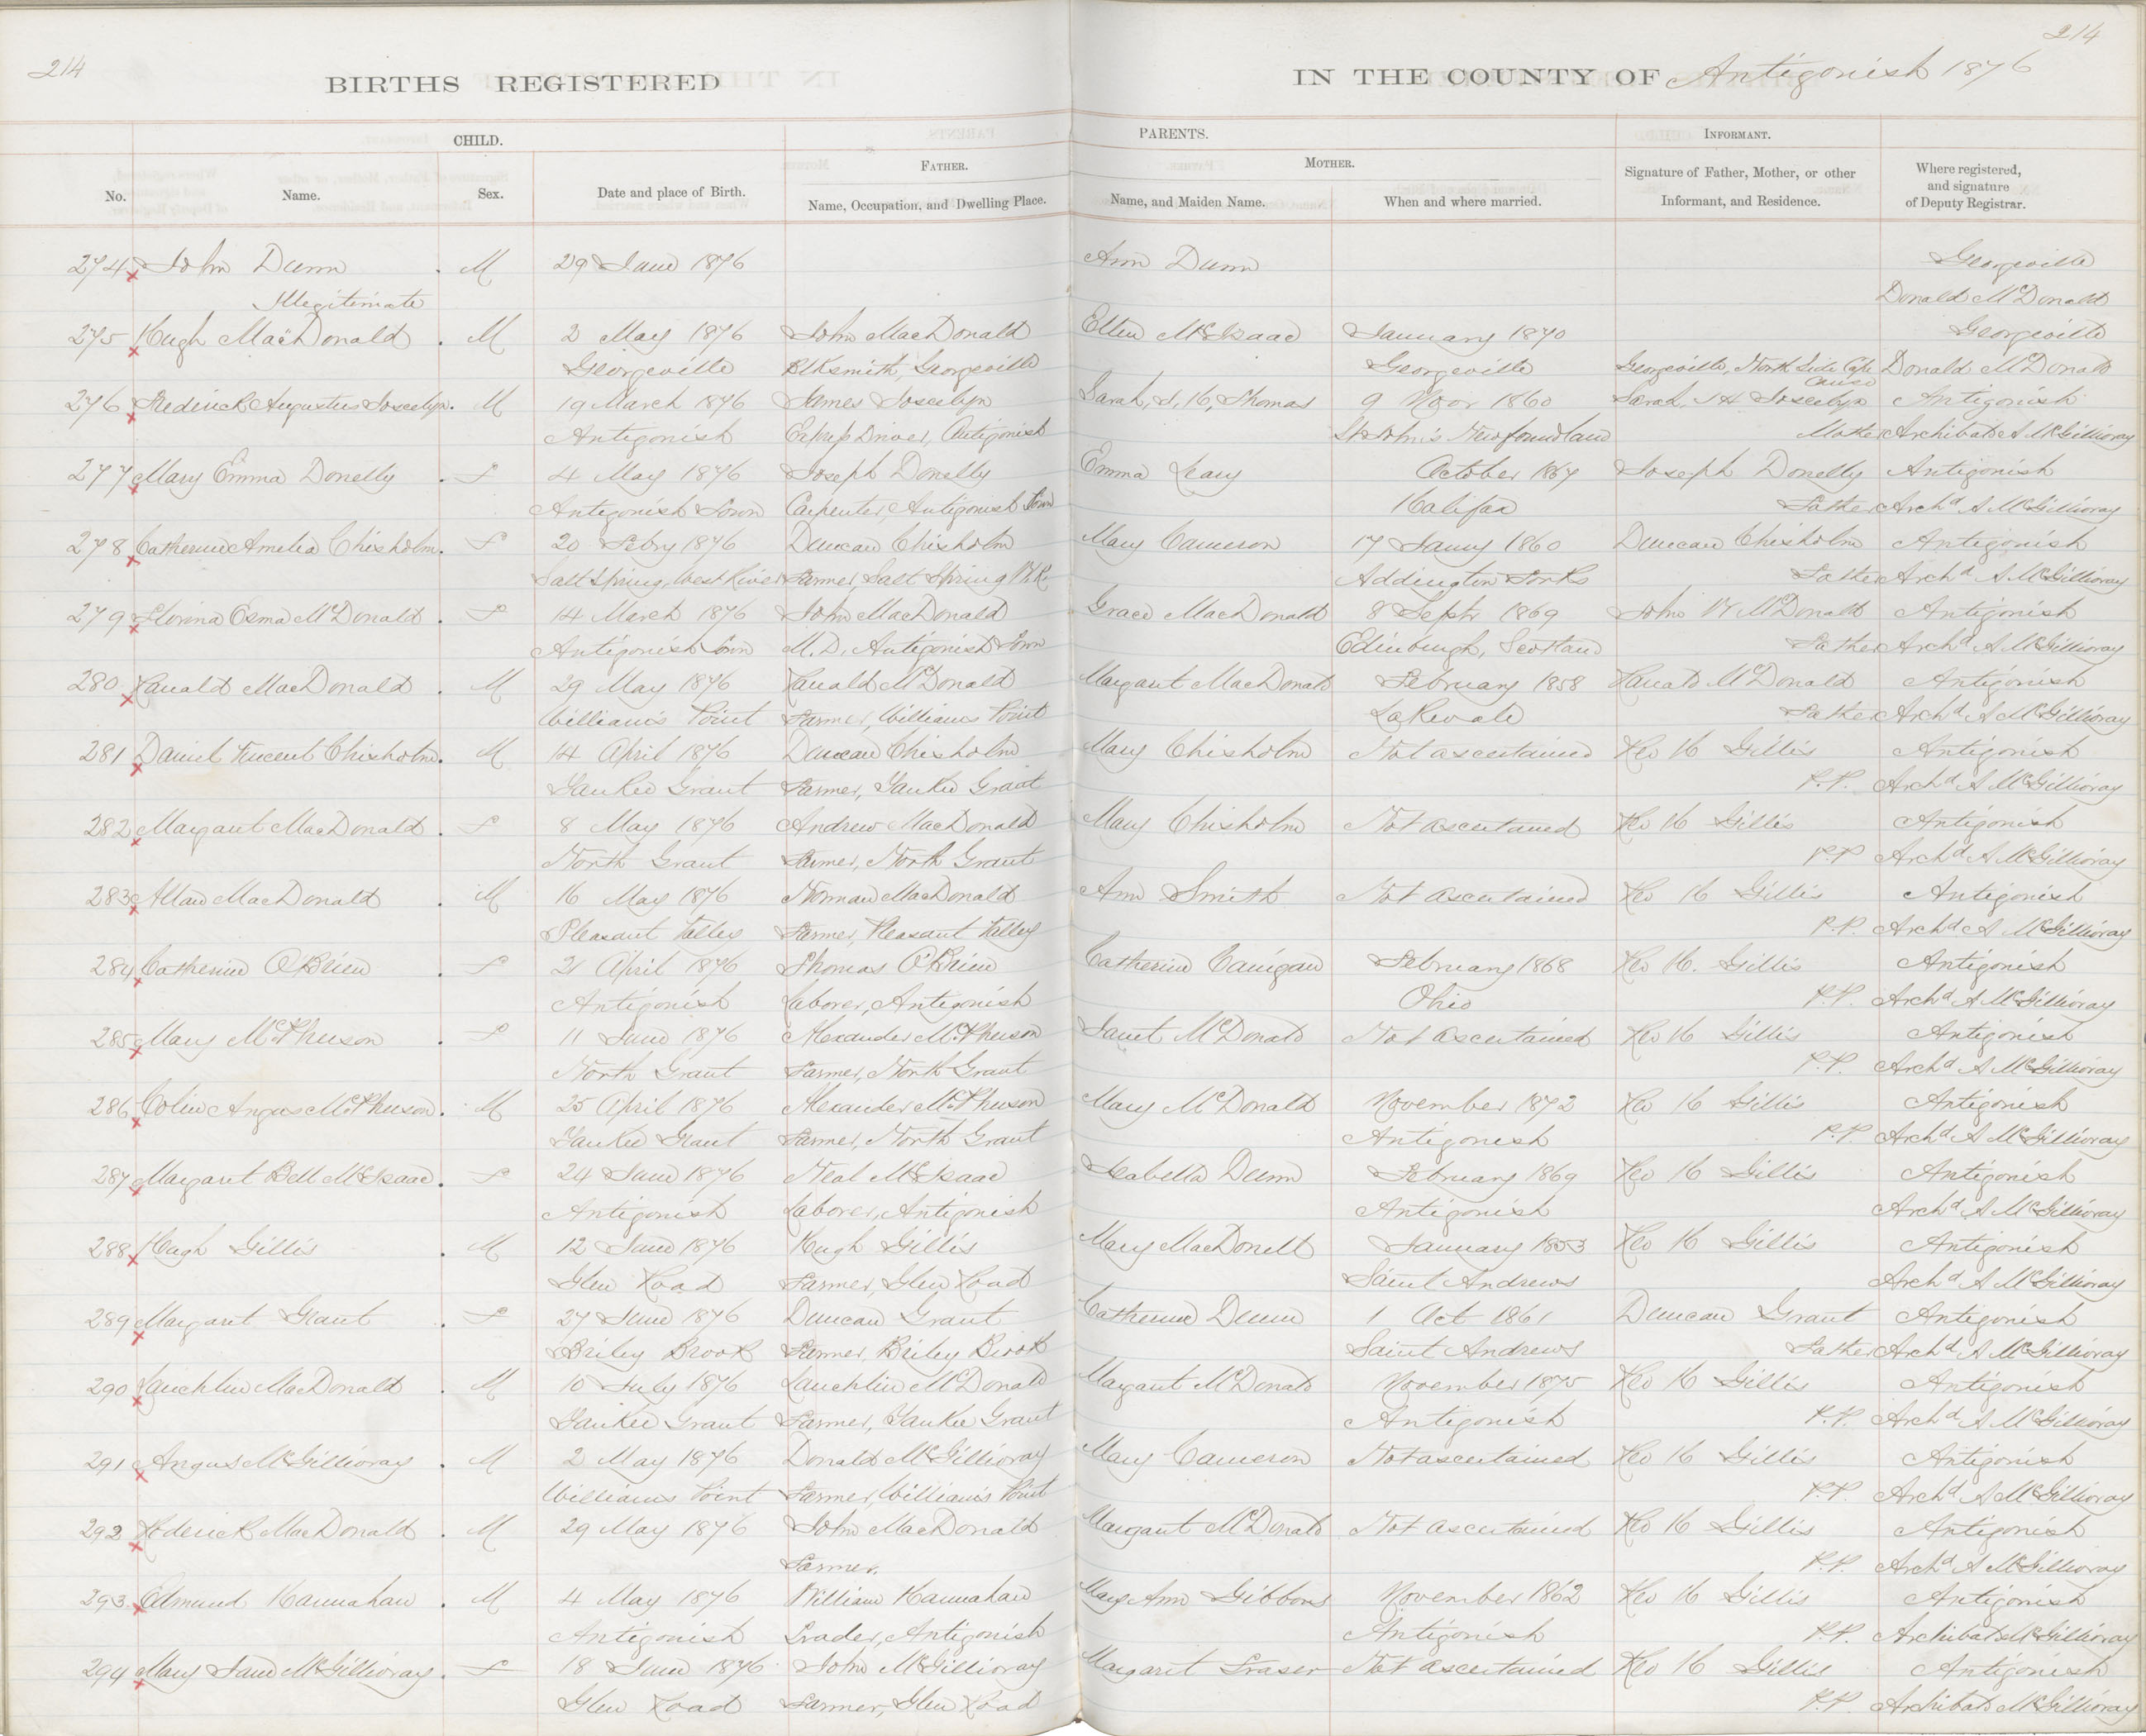 214
214
BIRTHS REGISTERED
IN THE COUNTY OF Antigonish 1876
CHILD.
PARENTS.
INFORMANT.
FATHER.
MOTHER.
No.
Name.
Sex.
Date and place of Birth.
Name, Occupation, and Dwelling Place.
Name, and Maiden Name.
When and where married.
Signature of Father, Mother, or other
Informant, and Residence.
Where registered,
and signature
of Deputy Registrar.
274 John Dunn M 29 June 1876 Ann Dunn Georgeville
Illegitimate Donald McDonald
275 Hugh MacDonald M 2 May 1876 John MacDonald Ellen McIsaac January 1870 Georgeville
Georgeville Blksmith, Georgeville Georgeville Georgeville, North Side Cape Donald McDonald
276 Frederick Augustus Joscelyn M 19 March 1876 James Joscelyn Sarah, J, H, Thomas 9 Novr 1860 Sarah, J H Joscelyn Antigonish
Antigonish Driver, Antigonish St John's Newfoundland Mother Archibald A McGillivray
277 Mary Emma Donelly F 4 May 1876 Joseph Donelly Emma Leary October 1867 Joseph Donelly Antigonish
Antigonish Town Carpenter, Antigonish Town Halifax Father Archd A McGillivray
278 Catherine Amelia Chisholm F 20 Febry 1876 Duncan Chisholm Mary Cameron 17 Jany 1860 Duncan Chisholm Antigonish
Salt Spring, West River Farmer, Salt Spring W.R. Addington Forks Father Archd A McGillivray
279 Florina Esma McDonald F 14 March 1876 John MacDonald Grace MacDonald 8 Septr 1869 John W McDonald Antigonish
Antigonish Town M.D, Antigonish Town Edinburgh, Scotland Father Archd A McGillivray
280 Ranald MacDonald M 29 May 1876 Ranald McDonald Margaret MacDonald February 1858 Ranald McDonald Antigonish
William's Point Farmer, William's Point Lakevale Father Archd A McGillivray
281 Daniel Vincent Chisholm M 14 April 1876 Duncan Chisholm Mary Chisholm Not ascertained Rev H Gillis Antigonish
Yankee Grant Farmer, Yankee Grant P.P. Archd A McGillivray
282 Margaret MacDonald F 8 May 1876 Andrew MacDonald Mary Chisholm Not ascertained Rev H Gillis Antigonish
North Grant Farmer, North Grant P.P Archd A McGillivray
283 Allan MacDonald M 16 May 1876 Norman MacDonald Ann Smith Not ascertained Rev H Gillis Antigonish
Pleasant Valley Farmer, Pleasant Valley P.P. Archd A McGillivray
284 Catherine O'Brien F 21 April 1876 Thomas O'Brien Catherine February 1868 Rev H. Gillis Antigonish
Antigonish Laborer, Antigonish Ohio P.P. Archd A McGillivray
285 Mary McPherson F 11 June 1876 Alexander McPherson Janet McDonald Not ascertained Rev H Gillis Antigonish
North Grant Farmer, North Grant P.P. Archd A McGillivray
286 Colin Angus McPherson M 25 April 1876 Alexander McPherson Mary McDonald November 1872 Rev H Gillis Antigonish
Yankee Grant Farmer, North Grant Antigonish P.P. Archd A McGillivray
287 Margaret Bell McIsaac F 24 June 1876 Neal McIsaac Isabella Dunn February 1869 Rev H Gillis Antigonish
Antigonish Laborer, Antigonish Antigonish Archd A McGillivray
288 Hugh Gillis M 12 June 1876 Hugh Gillis Mary MacDonell January 1853 Rev H Gillis Antigonish
Glen Road Farmer, Glen Road Saint Andrews Archd A McGillivray
289 Margaret Grant F 27 June 1876 Duncan Grant Catherine Dunn 1 Oct 1861 Duncan Grant Antigonish
Briley Brook Farmer, Briley Brook Saint Andrews Father Archd A McGillivray
290 Lauchlin MacDonald M 10 July 1876 Lauchlin McDonald Margaret McDonald November 1875 Rev H Gillis Antigonish
Yankee Grant Farmer, Yankee Grant Antigonish P.P. Archd A McGillivray
291 Angus McGillivray M 2 May 1876 Donald McGillivray Mary Cameron Not ascertained Rev H Gillis Antigonish
William's Point Farmer, William's Point P.P. Archd A McGillivray
292 Roderick MacDonald M 29 May 1876 John MacDonald Margaret McDonald Not ascertained Rev H Gillis Antigonish
Farmer, P.P. Archd A McGillivray
293 Edmund Hannahan M 4 May 1876 William Hannahan Mary Ann Gibbons November 1862 Rev H Gillis Antigonish
Antigonish Trader, Antigonish Antigonish P.P. Archibald McGillivray
294 Mary Jane McGillivray F 18 June 1876 John McGillivray Margaret Fraser Not ascertained Rev H Gillis Antigonish
Glen Road Farmer, Glen Road P.P. Archibald McGillivray